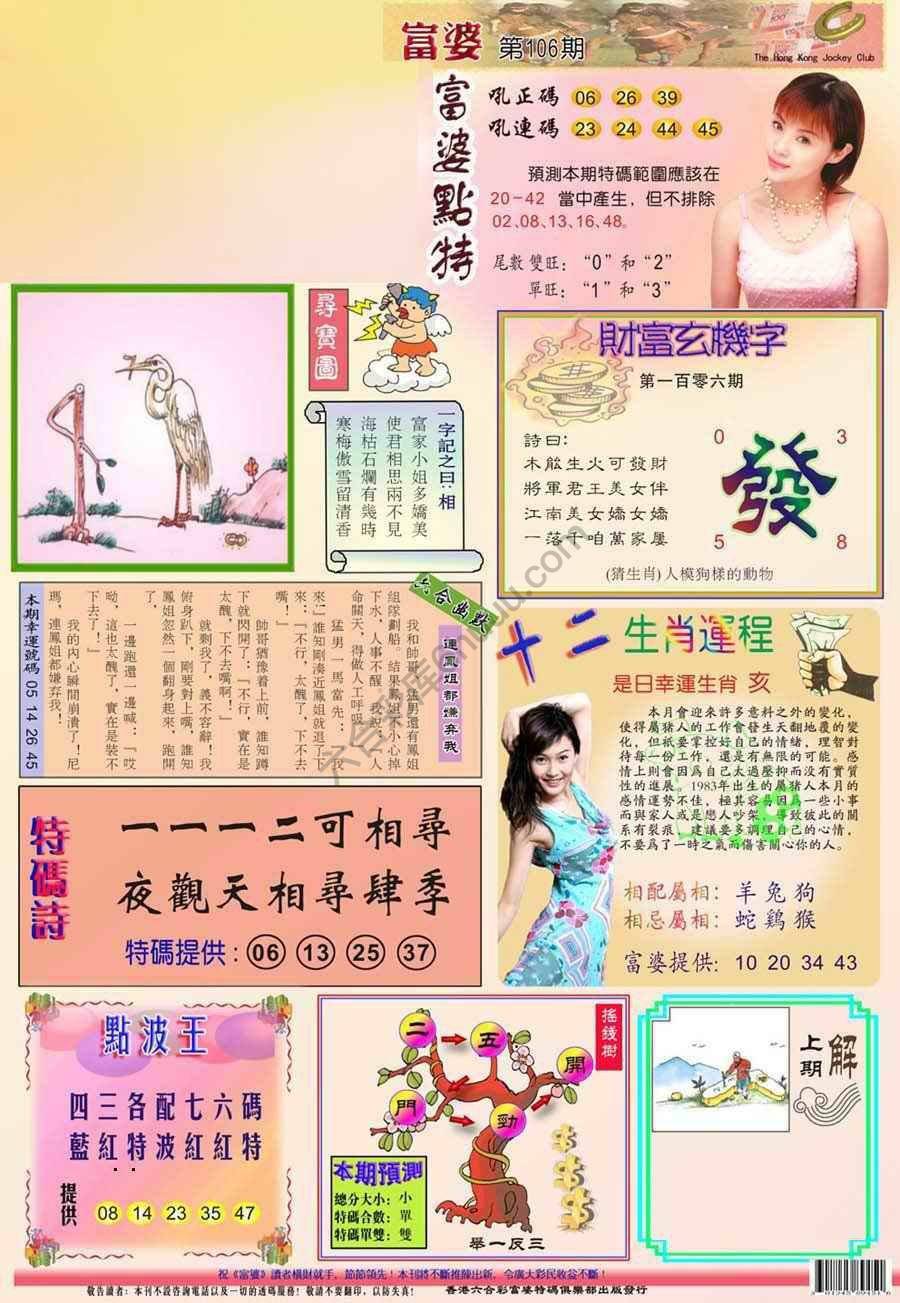 富婆 第106期
The Hong Kong Jockey Club
富婆點特
吼正碼 06 26 39
吼連碼 23 24 44 45
預測本期特碼範圍應該在
20-42 當中產生，但不排除
02、08、13、16、48。
尾數雙旺：“0”和“2”
單旺：“1”和“3”
尋寶圖
一字記之曰：相
富家小姐多嬌美
使君相思兩不見
海枯石爛有幾時
寒梅傲雪留清香
財富玄機字
第一百零六期
詩曰：
未能生火可發財
將軍君王美女伴
江南美女嬌女嬌
一落千咱萬家屢
0 3
發
5 8
(猜生肖)人模狗樣的動物
六合幽默
連鳳姐都嫌弃我
我和帥哥、猛男還有鳳姐
組隊劃船。結果鳳姐不小心掉
下水，人事不醒。我說：「人
命關天，得做人工呼吸。」
猛男一馬當先：「我
來！」誰知剛湊近鳳姐就退了下
來：「不行，太醜了，下不去
嘴。」
帥哥猶豫着上前，誰知蹲
下就閃開了：「不行，實在是
太醜，下不去嘴啊！」
就剩我了，義不容辭！我
俯身趴下，剛要對上嘴，誰知
鳳姐忽然一個翻身起來，跑開
了，
一邊跑還一邊喊：「哎
呦，這也太醜了，實在是裝不
下去了！」
我的内心瞬間崩潰了！尼
瑪，連鳳姐都嫌弃我！
本期幸運號碼 05 14 26 45
十二生肖運程
是日幸運生肖 亥
本月會迎來許多意料之外的變化，
使得屬猪人的工作會發生天翻地覆的變
化，但祇要掌控好自己的情緒，理智對
待每一份工作，還是有無限的可能。感
情上則會因爲自己太過壓抑而没有實質
性的進展。1983年出生的屬猪人本月的
感情運勢不佳，極其容易因爲一些小事
而與家人或是戀人吵架，導致彼此的關
系有裂痕，建議要多調理自己的心情，
不要爲了一時之氣而傷害關心你的人。
相配屬相：羊兔狗
相忌屬相：蛇鷄猴
富婆提供：10 20 34 43
特碼詩
一一一二可相尋
夜觀天相尋肆季
特碼提供：06 13 25 37
點波王
四三各配七六碼
藍紅特波紅紅特
提供 08 14 23 35 47
搖錢樹
二 五 開
門 勁
本期預測
總分大小：小
特碼合數：單
特碼單雙：雙
舉一反三
解
上期
祝《富婆》讀者橫財就手，節節領先！本刊將不斷推陳出新，令廣大彩民收益不斷！
敬告讀者：本刊不設咨詢電話以及一切的透碼服務！敬請不要翻印，以防失真！ 香港六合彩富婆特碼俱樂部出版發行